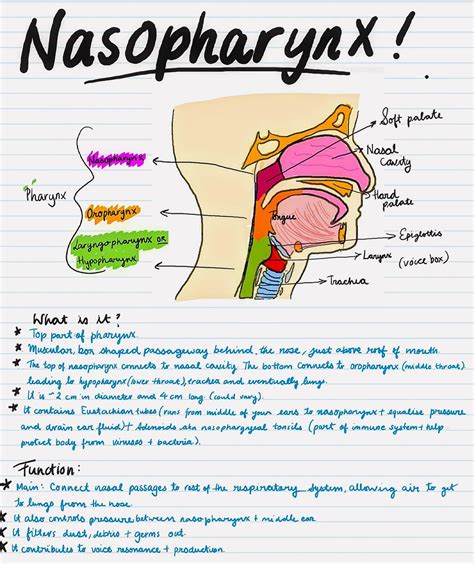 Nasopharynx!
Soft palate
Nasal Cavity
Nasopharynx
Hard palate
Pharynx
Oropharynx
Tongue
Epiglottis
Laryngopharynx OR Hypopharynx
Larynx (voice box)
Trachea
What is it?
* Top part of pharynx.
* Muscular, box shaped passageway behind the nose, just above roof of mouth.
* The top of nasopharynx connects to nasal cavity. The bottom connects to oropharynx (middle throat)
leading to hypopharynx (lower throat), trachea and eventually lungs.
* It is ~2 cm in diameter and 4 cm long. (could vary).
* It contains Eustachian tubes (runs from middle of your ears to nasopharynx + equalise pressure
and drain ear fluid) + Adenoids aka nasopharyngeal tonsils (part of immune system + help
protect body from viruses + bacteria).
Function:
* Main: Connect nasal passages to rest of the respiratory system, allowing air to get
to lungs from the nose.
* It also controls pressure between nasopharynx + middle ear.
* It filters dust, debris + germs out.
* It contributes to voice resonance + production.